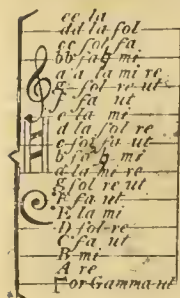 ee la
dd la sol
cc sol fa
bb fa ♮ mi
a a la mi re
g sol re ut
f fa ut
e la mi
d la sol re
c sol fa ut
b fa ♮ mi
a la mi re
g sol re ut
F fa ut
E la mi
D sol re
C fa ut
B mi
A re
Γ or Gamma ut